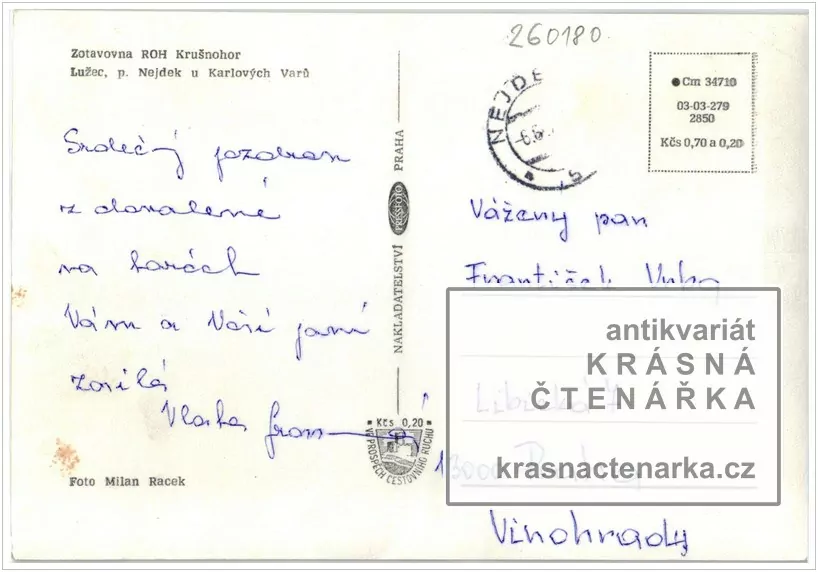 260180
Zotavovna ROH Krušnohor
Lužec, p. Nejdek u Karlových Varů
NEJDE
-6.6.
Cm 34710
03-03-279
2850
Kčs 0,70 a 0,20
Srdečný pozdrav
z dovolené
na horách
Vám a Vaší paní
zasílá
Vlasta
NAKLADATELSTVÍ PRESSFOTO PRAHA
Kčs 0,20
VE PROSPĚCH CESTOVNÍHO RUCHU
Foto Milan Racek
Vážený pan
František
13000
Vinohrady
antikvariát
KRÁSNÁ
ČTENÁŘKA
krasnactenarka.cz